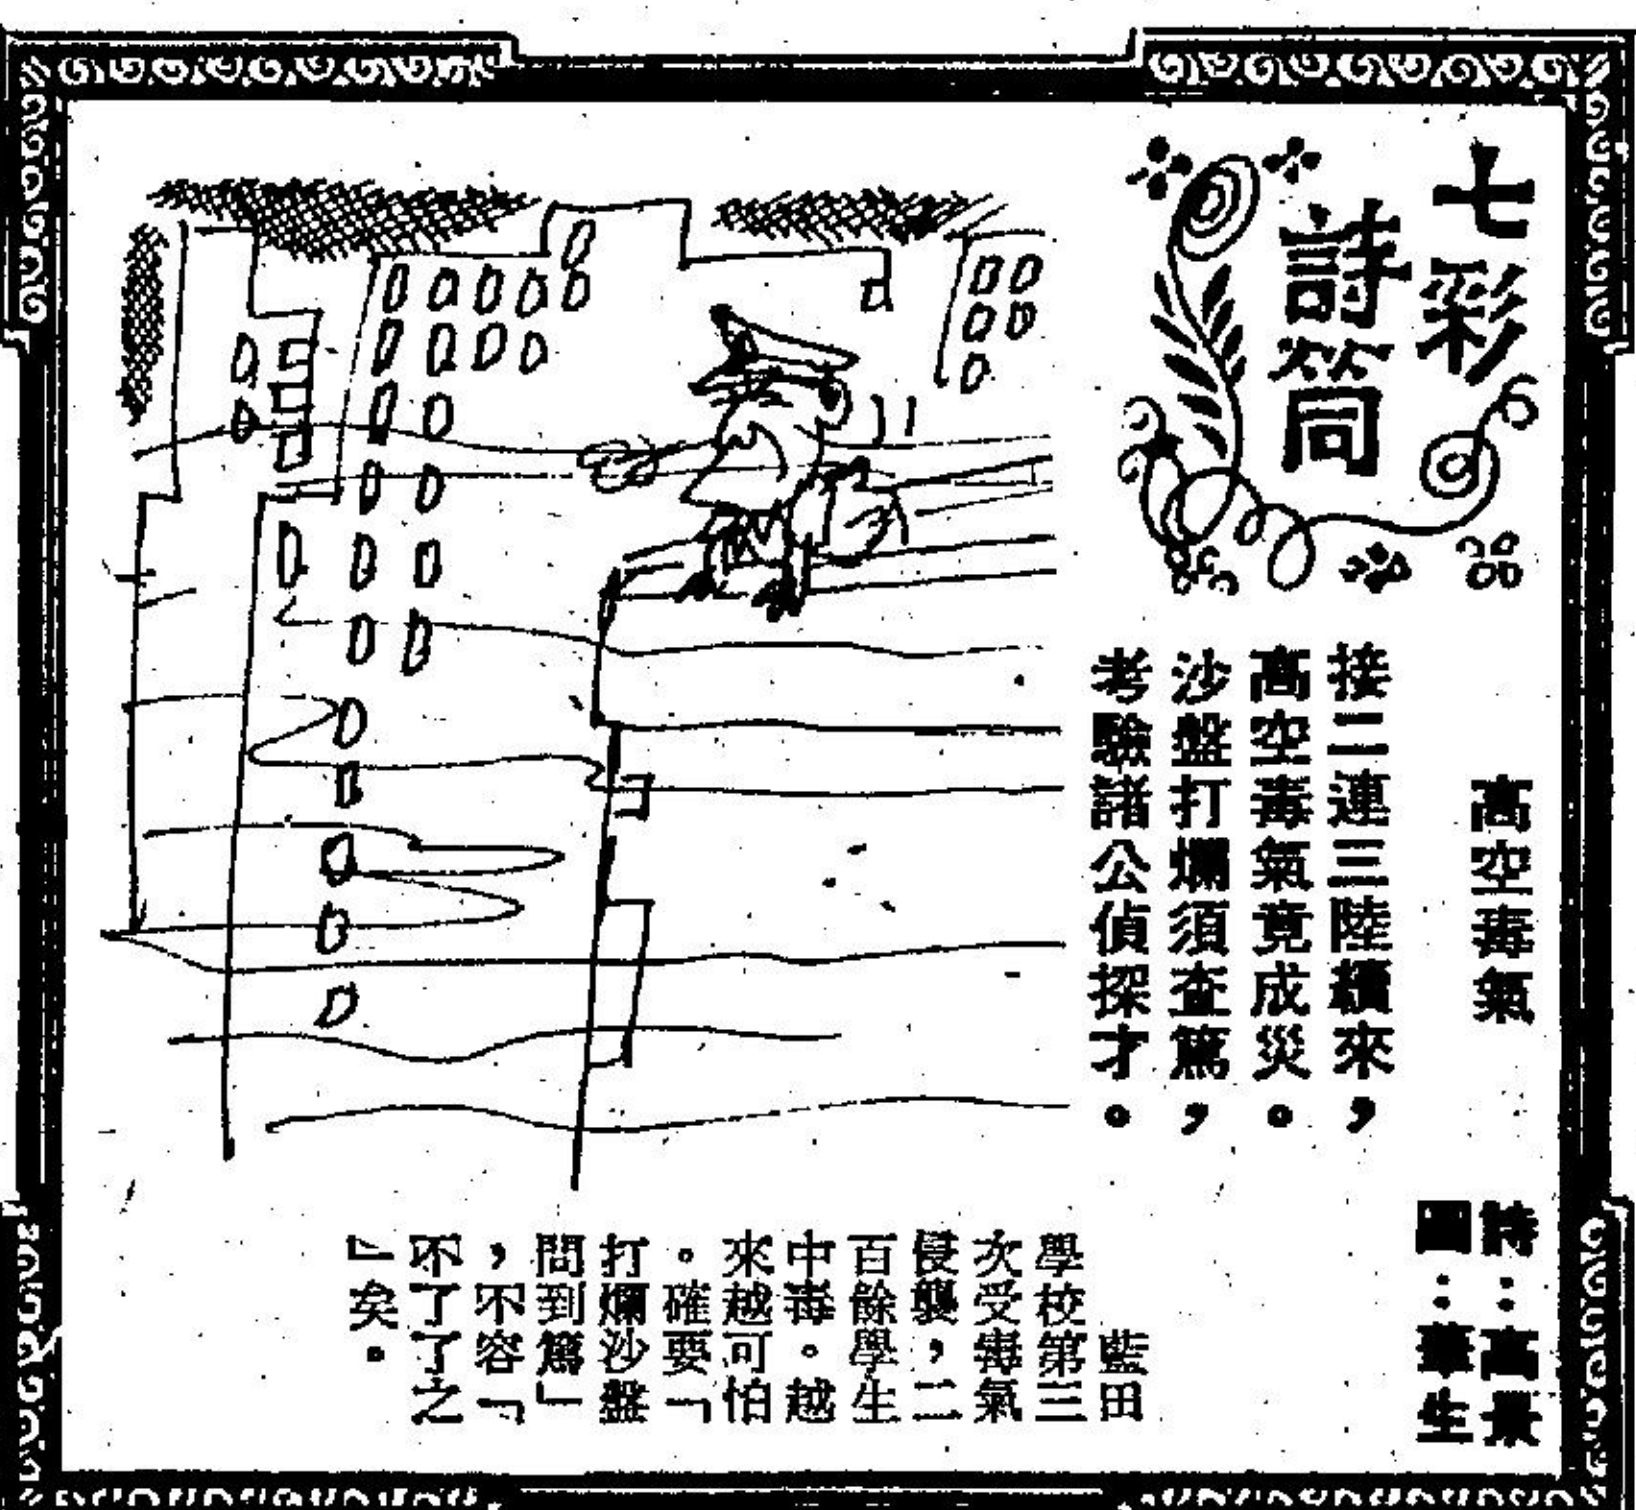 七彩
詩筒
高空毒氣
詩：高景
圖：華生
接二連三陸續來，
高空毒氣竟成災。
沙盤打爛須查篤，
考驗諸公偵探才。
藍田
學校第三
次受毒氣
侵襲，二
百餘學生
中毒。越
來越可怕
。確要「
打爛沙盤
問到篤」
，不容「
不了了之
」矣。